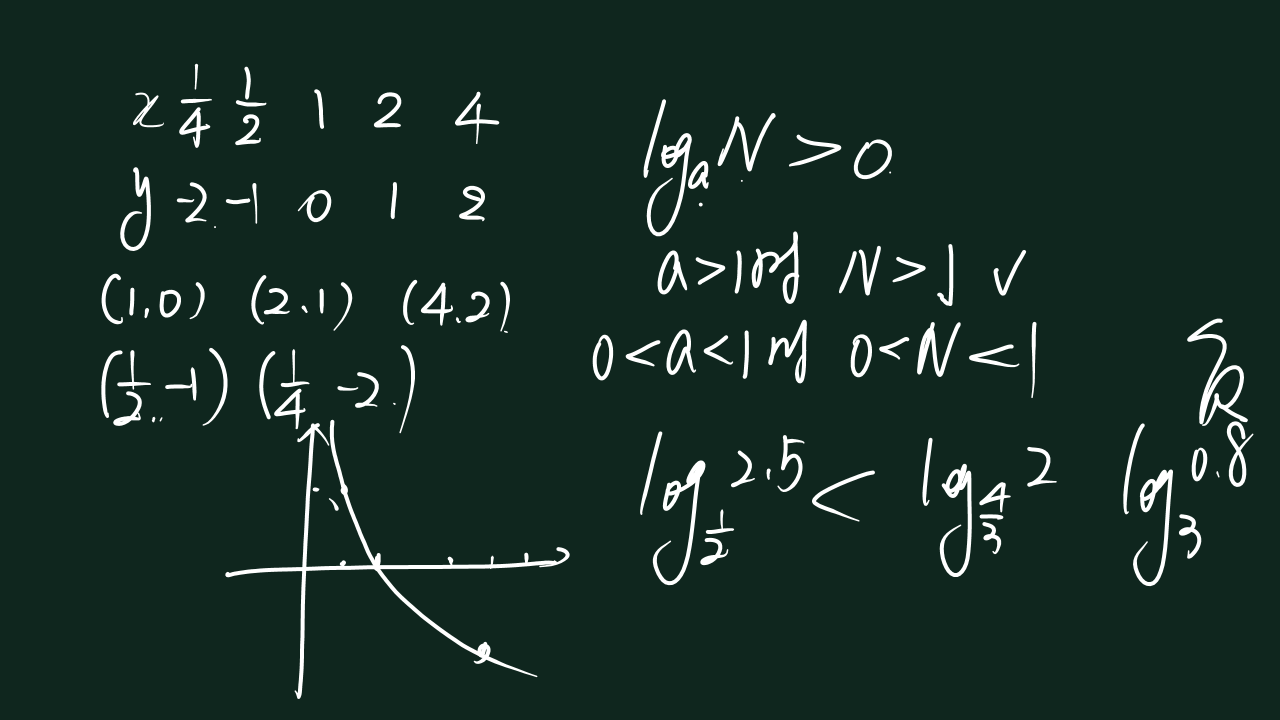 x 1/4 1/2 1 2 4
y -2 -1 0 1 2
(1,0) (2.1) (4.2)
(1/2 -1) (1/4 -2)
log_a N > 0
a>1时 N>1 ✓
0<a<1时 0<N<1
log_{1/2} 2.5 < log_{4/3} 2 log_3 0.8